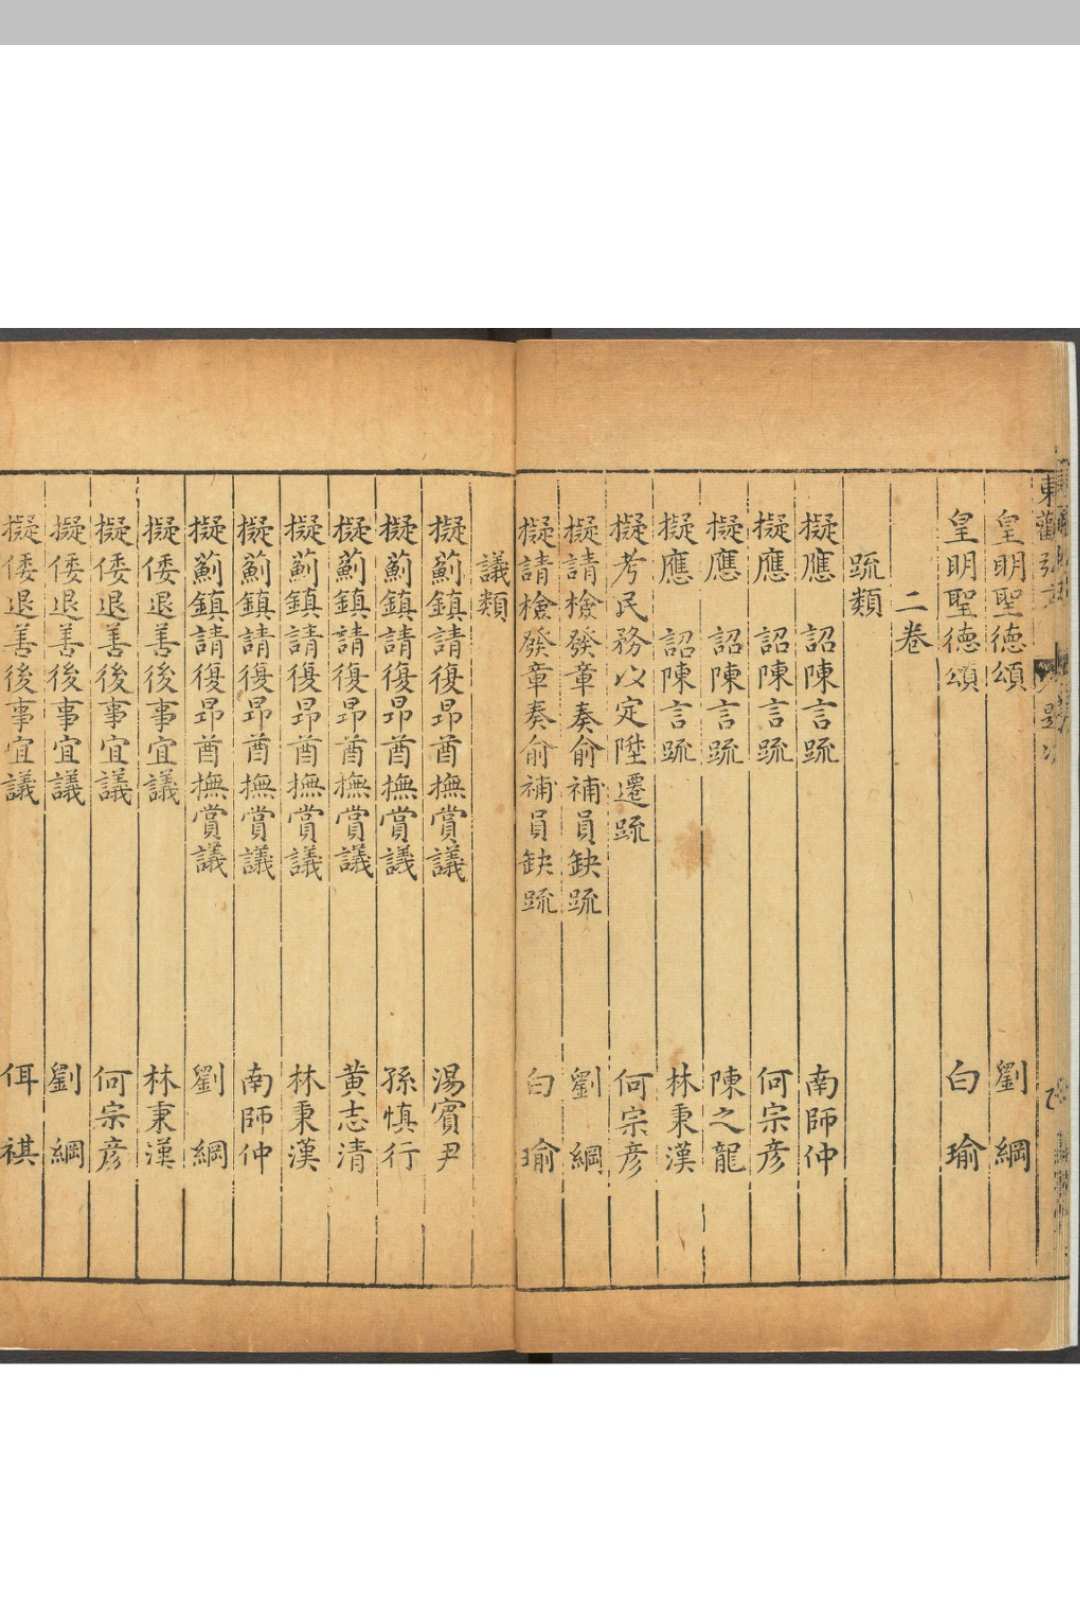 皇明聖德頌 劉綱
皇明聖德頌 白瑜
二卷
疏類
擬應 詔陳言疏 南師仲
擬應 詔陳言疏 何宗彥
擬應 詔陳言疏 陳之龍
擬應 詔陳言疏 林秉漢
擬考民務以定陞遷疏 何宗彥
擬請檢發章奏俞補員缺疏 劉綱
擬請檢發章奏俞補員缺疏 白瑜
議類
擬薊鎮請復昻酋撫賞議 湯賓尹
擬薊鎮請復昻酋撫賞議 孫慎行
擬薊鎮請復昻酋撫賞議 黃志清
擬薊鎮請復昻酋撫賞議 林秉漢
擬薊鎮請復昻酋撫賞議 南師仲
擬薊鎮請復昻酋撫賞議 劉綱
擬倭退善後事宜議 林秉漢
擬倭退善後事宜議 何宗彥
擬倭退善後事宜議 劉綱
擬倭退善後事宜議 佴祺